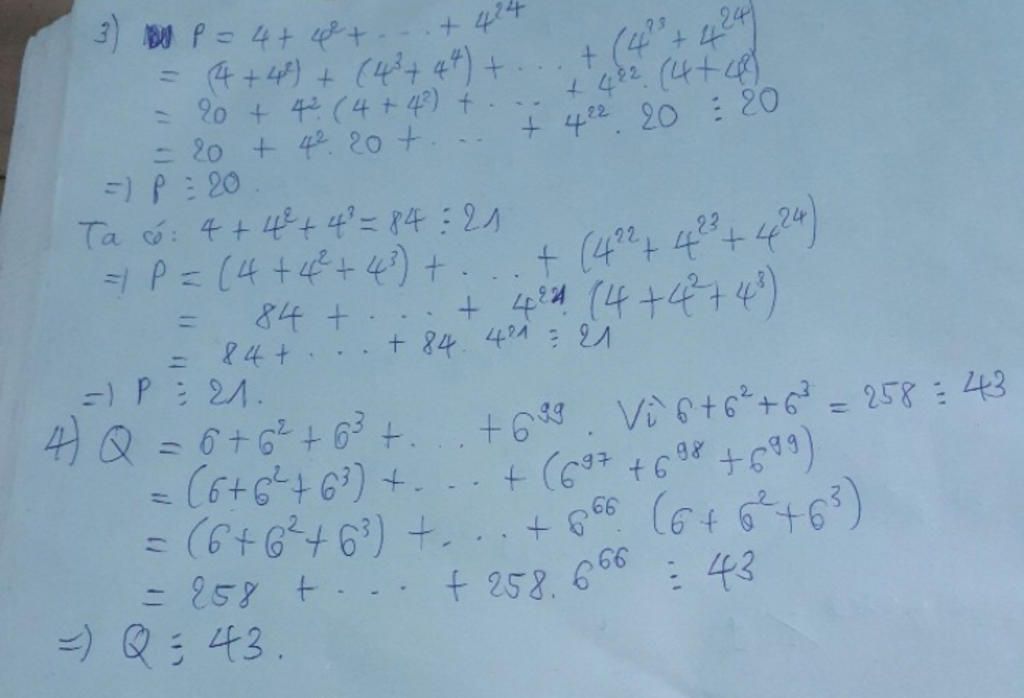 3) P = 4 + 4² + ... + 4²⁴
= (4 + 4²) + (4³ + 4⁴) + ... + (4²³ + 4²⁴)
= 20 + 4². (4 + 4²) + ... + 4²². (4 + 4²)
= 20 + 4². 20 + ... + 4²². 20 ⋮ 20
=) P ⋮ 20.
Ta có: 4 + 4² + 4³ = 84 ⋮ 21
=) P = (4 + 4² + 4³) + ... + (4²² + 4²³ + 4²⁴)
= 84 + ... + 4²¹. (4 + 4² + 4³)
= 84 + ... + 84. 4²¹ ⋮ 21
=) P ⋮ 21.
4) Q = 6 + 6² + 6³ + ... + 6⁹⁹. Vì 6 + 6² + 6³ = 258 ⋮ 43
= (6 + 6² + 6³) + ... + (6⁹⁷ + 6⁹⁸ + 6⁹⁹)
= (6 + 6² + 6³) + ... + 6⁶⁶. (6 + 6² + 6³)
= 258 + ... + 258. 6⁶⁶ ⋮ 43
=) Q ⋮ 43.